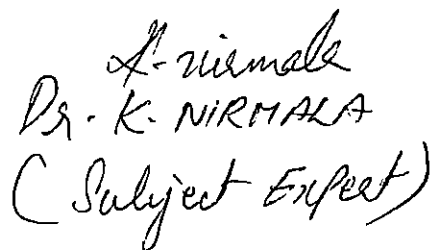 K. Nirmala
Dr. K. NIRMALA
(Subject Expert)